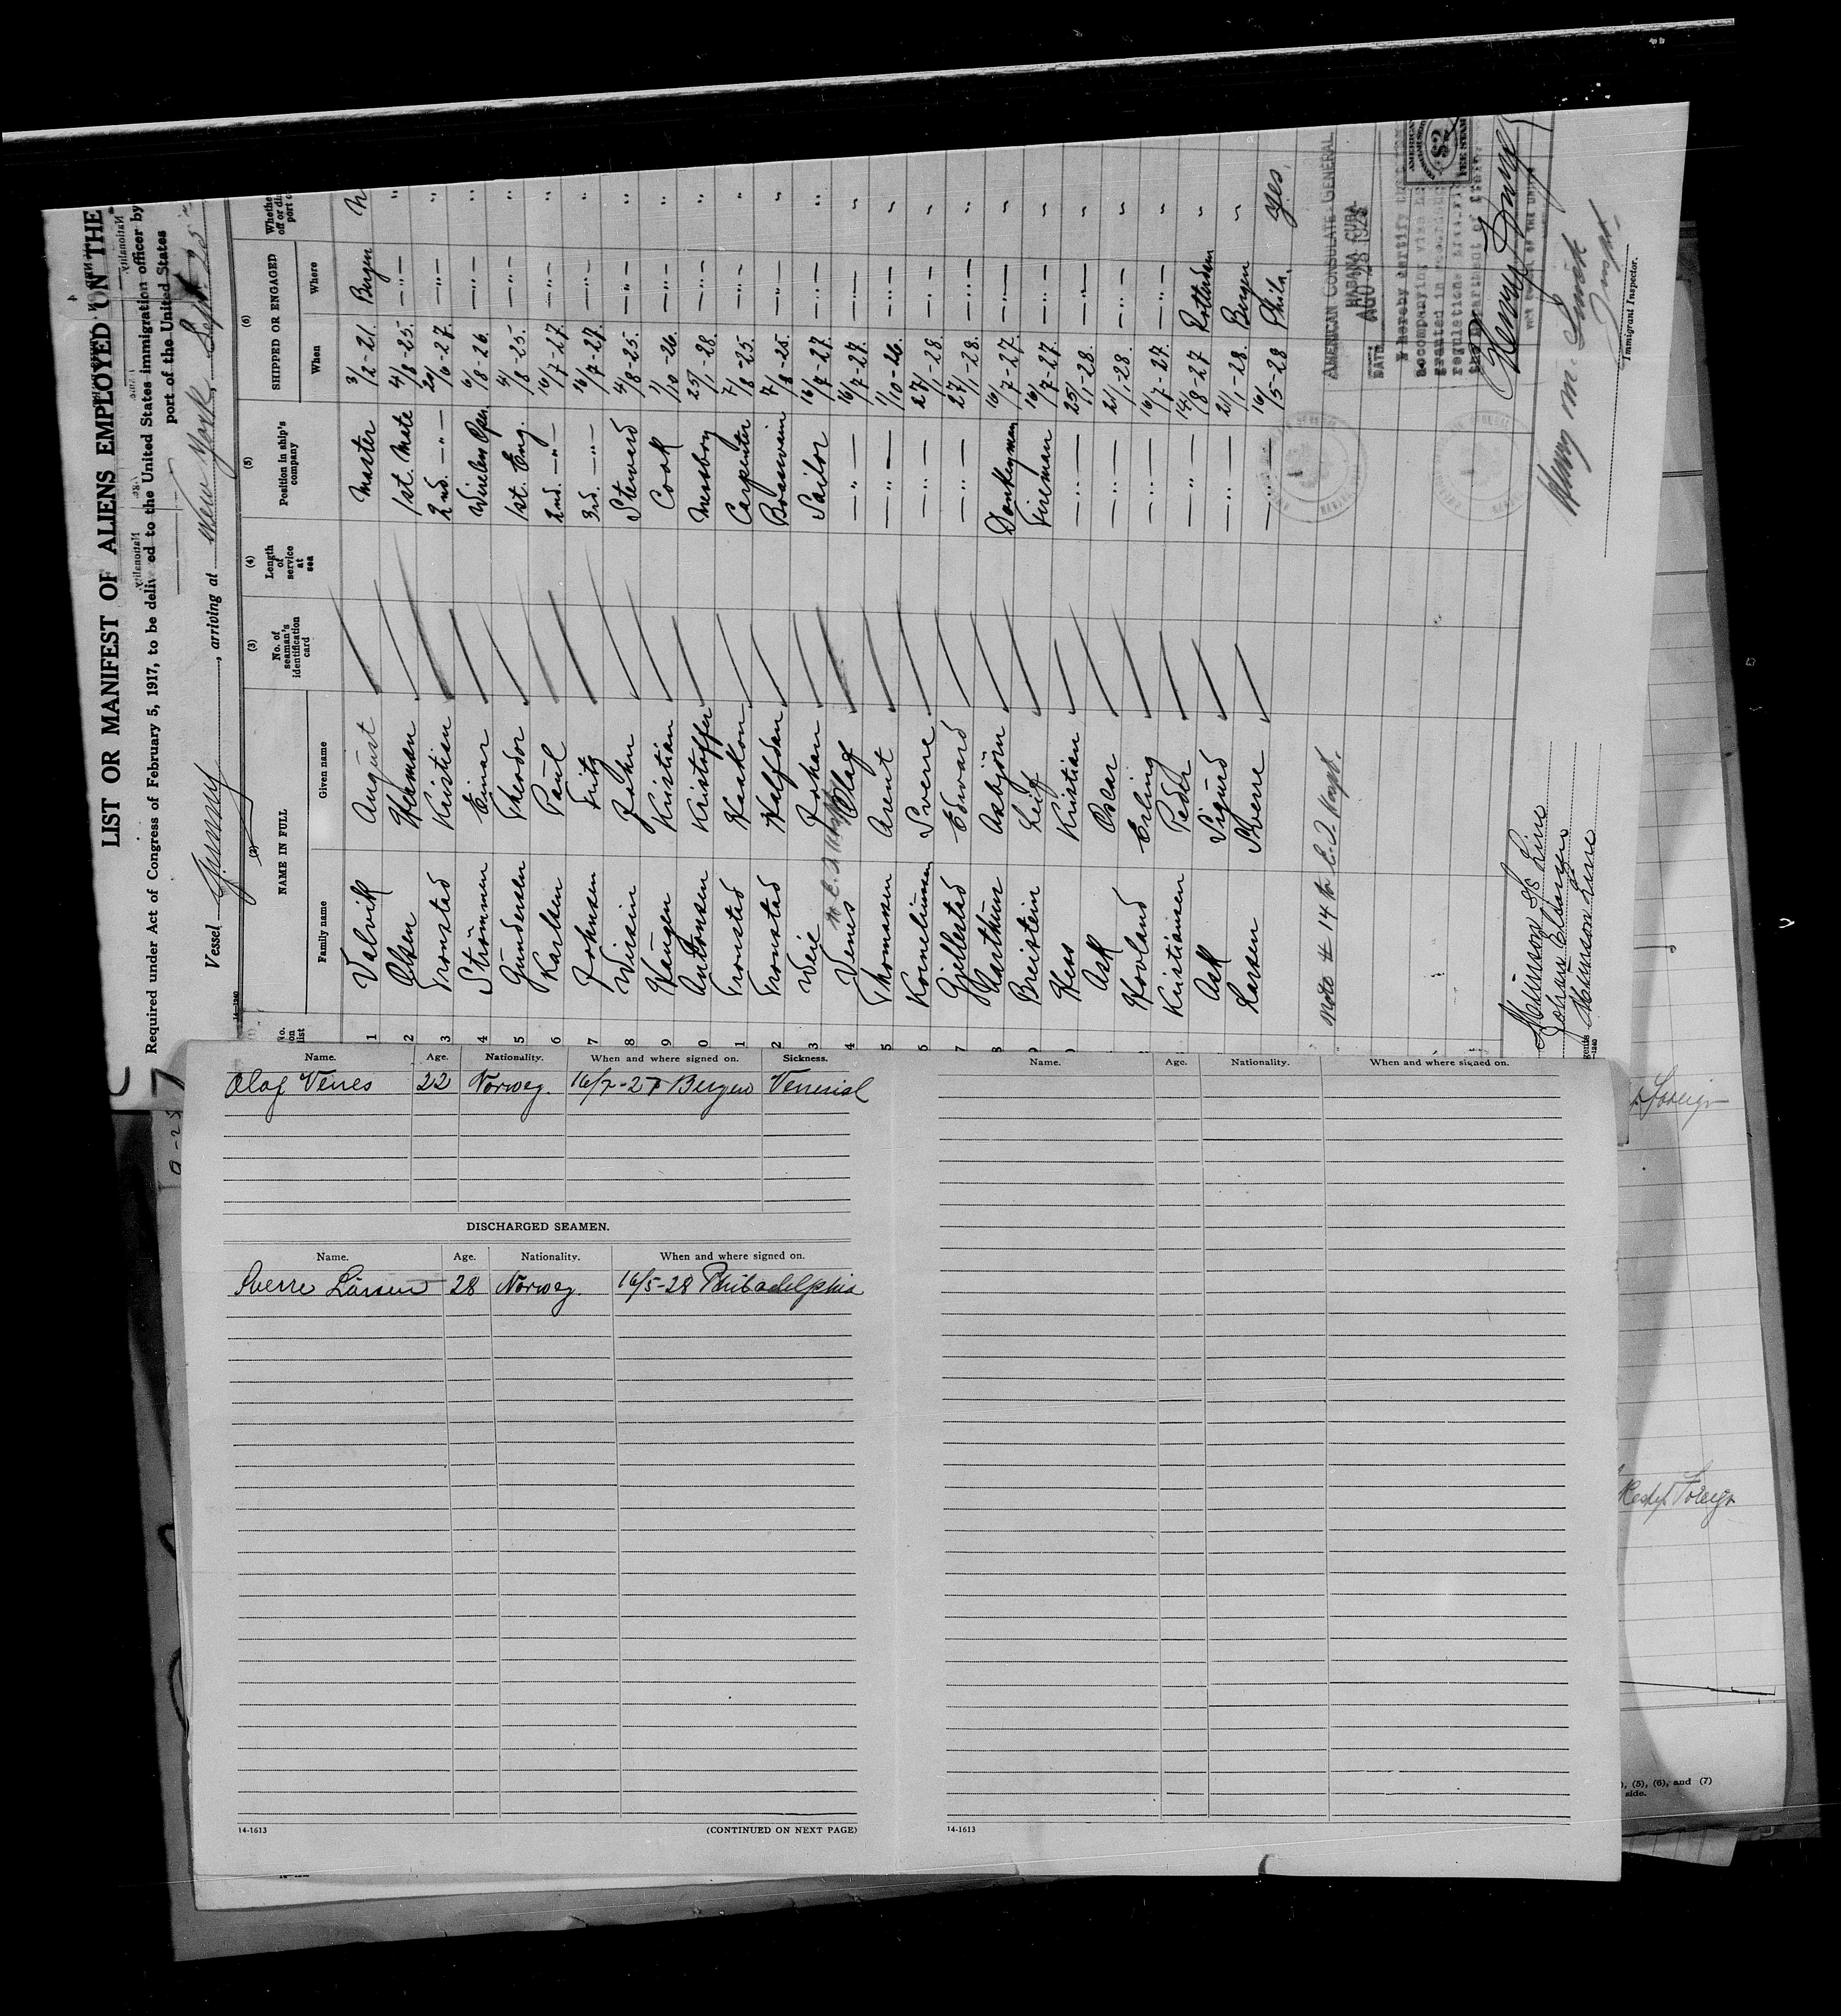 LIST OR MANIFEST OF ALIENS EMPLOYED ON THE
Required under Act of Congress of February 5, 1917, to be delivered to the United States immigration officer by
port of the United States
Vessel, arriving at New York, Sept. 25
No. on list
(2) NAME IN FULL
Family name Given name
(3) No. of seaman's identification card
(4) Length of service at sea
(5) Position in ship's company
(6) SHIPPED OR ENGAGED
When Where
1 Valvik August Master 3/2-21. Bergen
2 Olsen Herman 1st. Mate 4/8-25. —"—
3 Tronstad Kristian 2nd. —"— 20/6-27. —"— "
4 Strömmen Einar Wireless Oper. 6/8-26. —"— "
5 Gundersen Theodor 1st. Eng. 4/8-25. —"— "
6 Karlsen Paul 2nd. —"— 16/7-27. —"— "
7 Johnsen Fritz 3rd. —"— 16/7-27. —"— "
8 John Steward 4/8-25. —"— "
9 Haugen Kristian Cook 1/10-26. —"— "
0 Antonsen Kristoffer Messboy 25/1-28. —"— "
1 Tronstad Haakon Carpenter 7/8-25. —"— "
2 Tronstad Halfdan Boatswain 7/8-25. —"— "
3 Weie Johan Sailor 16/7-27. —"— "
4 Venes Olaf —"— 16/7-27. —"— "
5 Thomassen Arent —"— 1/10-26. —"— "
6 Korneliussen Sverre —"— 27/1-28. —"— "
7 Gjellestad Edward —"— 27/1-28. —"— "
8 Marthins Asbjörn Donkeyman 16/7-27. —"— "
Breistein Leif Fireman 16/7-27. —"— "
Hess Kristian —"— 25/1-28. —"— "
Ask Oscar —"— 21/1-28. —"— "
Hovland Erling —"— 16/7-27. —"— "
Kristiansen Peder —"— 14/8-27 Rotterdam "
Ask Sigurd —"— 21/1-28. Bergen "
Larsen Sverre —"— 16/5-28 Phila. yes.
Note # 14 to Hospt.
AMERICAN CONSULATE GENERAL
HABANA, CUBA
DATE AGO 28 1928
I hereby certify
accompanying visa
granted in
regulations
the Department of
AMERICAN
$2
FEE STAMP
Immigrant Inspector.
Munson SS Line
Munson Line
Name. Age. Nationality. When and where signed on. Sickness.
Olaf Venes 22 Norweg. 16/7-27 Bergen Venerial
DISCHARGED SEAMEN.
Name. Age. Nationality. When and where signed on.
Sverre Larsen 28 Norweg. 16/5-28 Philadelphia
14-1613 (CONTINUED ON NEXT PAGE)
Name. Age. Nationality. When and where signed on.
14-1613
Foreign
Foreign
), (5), (6), and (7)
side.